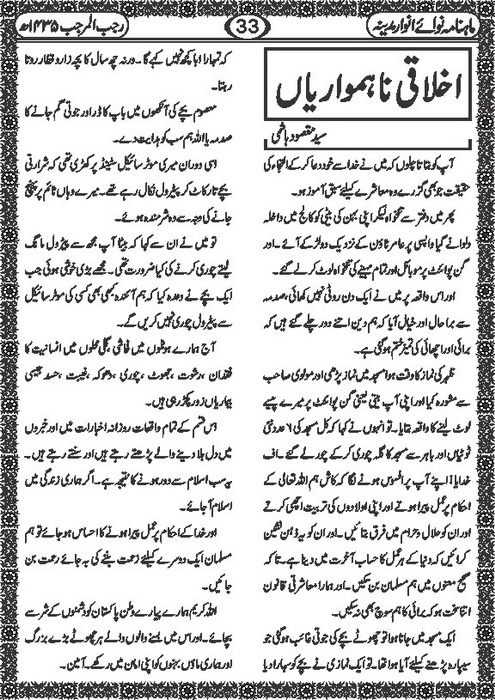 ماہنامہ نوائے انوار مدینہ
33
رجب المرجب ۱۴۳۵ھ
اخلاقی ناہمواریاں
سید مقصود ہاشمی
آپ کو بتاتا چلوں کہ میں نے خدا سے خود دعا کر کے التجاء کی
حقیقت جو بھی گزرے وہ معاشرے کیلئے سبق آموز ہو۔
پھر میں دفتر سے تنخواہ لیکر اپنی بہن کی بیٹی کو کالج میں داخلہ
دلوانے گیا واپسی پر عامر ٹاؤن کے نزدیک دو لڑکے آئے۔ اور
گن پوائنٹ پر موبائل اور تمام مہینے کی تنخواہ لوٹ کر لے گئے۔
اور اس واقعہ پر میں نے ایک دن روٹی نہیں کھائی، صدمہ
سے برا حال اور خیال آیا کہ ہم دین اتنے دور چلے گئے ہیں کہ
برائی اور اچھائی کی تمیز ختم ہو گئی ہے۔
ظہر کی نماز کا وقت ہوا مسجد میں نماز پڑھی اور مولوی صاحب
سے مشورہ کیا اور اپنی آپ بیتی لیتی گن پوائنٹ پر میرے پیسے
لوٹ لینے کا واقعہ بتایا۔ تو انہوں نے کہا کہ کل مسجد کی ۶ عدد نئی
ٹوٹیاں اور باہر سے مسجد کا گلہ چوری کر کے چور لے گئے۔ اف
خدایا! اپنے آپ پر افسوس ہونے لگا کہ کاش ہم اللہ تعالی کے
احکام پر عمل پیرا ہوتے اور اپنی اولادوں کی تربیت اچھی کرتے
اور ان کو حلال و حرام میں فرق بتائیں۔ اور ان کو یہ ذہن نشین
کرائیں کہ دنیا کے ہر عمل کا حساب آخرت میں دینا ہے۔ تاکہ
صحیح معنوں میں ہم مسلمان بن سکیں۔ اور ہمارا معاشرتی قانون
اتنا سخت ہو کہ برائی کا ہم سوچ بھی نہ سکیں۔
ایک مسجد میں جانا ہوا تو چھوٹے بچے کی جوتی غائب ہو گئی جو
سپارہ پڑھنے کیلئے آیا ہوا تھا۔ تو ایک نمازی نے بچے کو سہارا دیا
کہ تمہارا ابا کچھ نہیں کہے گا۔ ورنہ چھ سال کا بچہ زار و قطار روتا
رہتا۔
معصوم بچے کی آنکھوں میں باپ کا ڈر اور جوتی گم جانے کا
صدمہ یا اللہ ہم سب کو ہدایت دے۔
اسی دوران میری موٹر سائیکل سٹینڈ پر کھڑی تھی کہ شرارتی
بچے تار کاٹ کر پیٹرول نکال رہے تھے۔ میرے وہاں ٹائم پر پہنچ
جانے کی وجہ سے وہ شرمندہ ہوئے۔
تو میں نے ان سے کہا کہ بیٹا آپ مجھ سے پیٹرول مانگ
لیتے چوری کرنے کی کیا ضرورت تھی۔ مجھے بڑی خوشی ہوئی جب
ایک بچے نے وعدہ کیا کہ ہم آئندہ کبھی بھی کسی کی موٹر سائیکل
سے پیٹرول چوری نہیں کریں گے۔
آج ہمارے ہوٹلوں میں فحاشی، گلی محلوں میں انسانیت کا
فقدان، رشوت، جھوٹ، چوری، دھوکہ، غیبت، حسد جیسی
بیماریاں زور پکڑ رہی ہیں۔
اس قسم کے تمام واقعات روزانہ اخبارات میں اور خبروں
میں دل ہلا دینے والے پڑھتے رہتے ہیں اور سنتے رہتے ہیں۔
یہ سب اسلام سے دور ہونے کا نتیجہ ہے۔ اگر ہماری زندگی میں
اسلام آ جائے۔
اور خدا کے احکام پر عمل پیرا ہونے کا احساس ہو جائے تو ہم
مسلمان ایک دوسرے کیلئے زحمت بننے کی بجائے رحمت بن
جائیں۔
اللہ کریم ہمارے پیارے وطن پاکستان کو دشمنوں کے شر سے
بچائے۔ اور اس میں بسنے والوں والے ہر چھوٹے بڑے بزرگ
اور ہماری ماؤں بہنوں کو اپنی امان میں رکھے۔ آمین۔